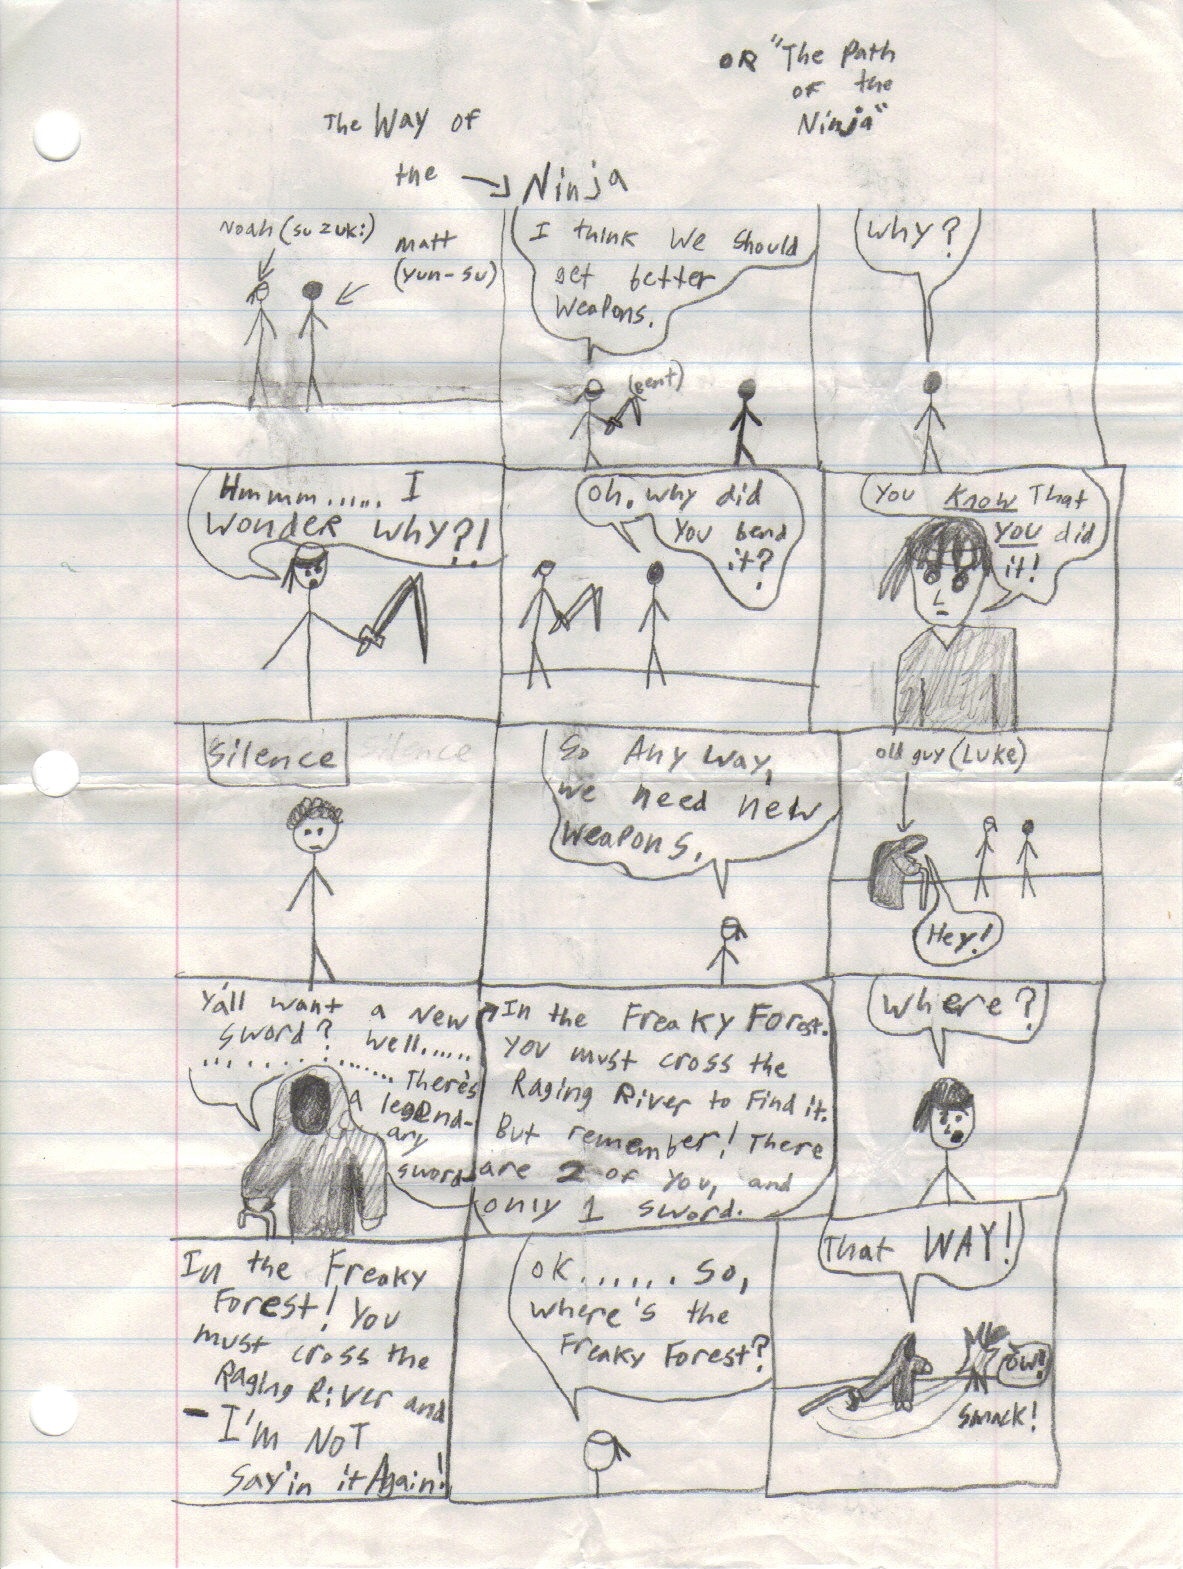 OR "The Path
OF the
Ninja"
The Way of
the → Ninja
Noah (suzuki)
Matt
(Yun-su)
I think We should
get better
Weapons.
(Bent)
Why?
Hmmm...... I
Wonder why?!
Oh, why did
You bend
it?
You Know That
YOU did
it!
Silence
silence
So Any Way,
we need new
Weapons.
old guy (LUKE)
Hey!
Y'all want a New
sword? Well......
............... There's
A legend-
ary
sword
In the Freaky Forest.
You must cross the
Raging River to Find it.
But remember! There
are 2 of You, and
only 1 sword.
Where?
In the Freaky
Forest! You
must cross the
Raging River and
- I'm NOT
Say'in it Again!
OK....... So,
Where's the
Freaky Forest?
That WAY!
OW!
SMACK!